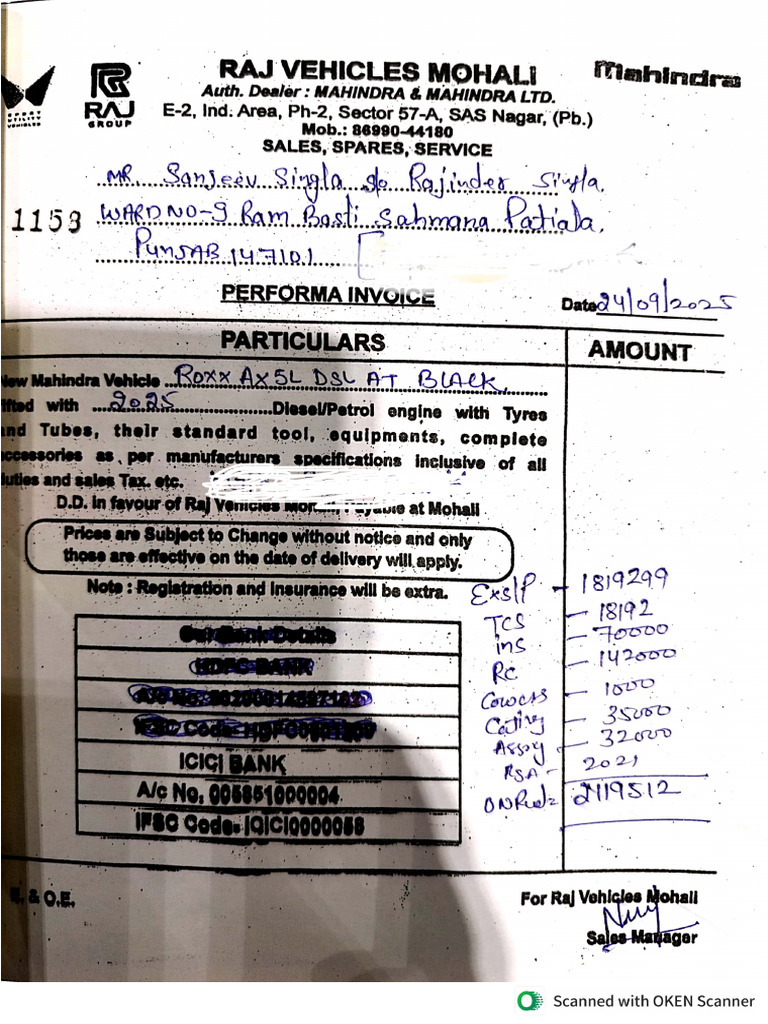 RAJ VEHICLES MOHALI
Mahindra
SPORT UTILITY VEHICLES
RAJ GROUP
Auth. Dealer : MAHINDRA & MAHINDRA LTD.
E-2, Ind. Area, Ph-2, Sector 57-A, SAS Nagar, (Pb.)
Mob.: 86990-44180
SALES, SPARES, SERVICE
MR. Sanjeev Singla S/o Rajinder Singla.
1153 WARD NO-9 Ram Basti Sahmana Patiala.
PUNJAB 147101
PERFORMA INVOICE
Date 24/09/2025
PARTICULARS
AMOUNT
New Mahindra Vehicle ROXX AX5L DSL AT BLACK
fitted with 2025 Diesel/Petrol engine with Tyres
and Tubes, their standard tool, equipments, complete
accessories as per manufacturers specifications inclusive of all
duties and sales Tax. etc.
D.D. in favour of Raj Vehicles Mohali, Payable at Mohali
Prices are Subject to Change without notice and only
those are effective on the date of delivery will apply.
Note : Registration and Insurance will be extra.
ExS/P - 1819299
TCS - 18192
ins - 70000
RC - 142000
1000
Coating - 35000
32000
RSA - 2021
2119512
Bank Details
HDFC BANK
ICICI BANK
A/c No. 005851000004
IFSC Code: ICICI0000058
E. & O.E.
For Raj Vehicles Mohali
Sales Manager
Scanned with OKEN Scanner